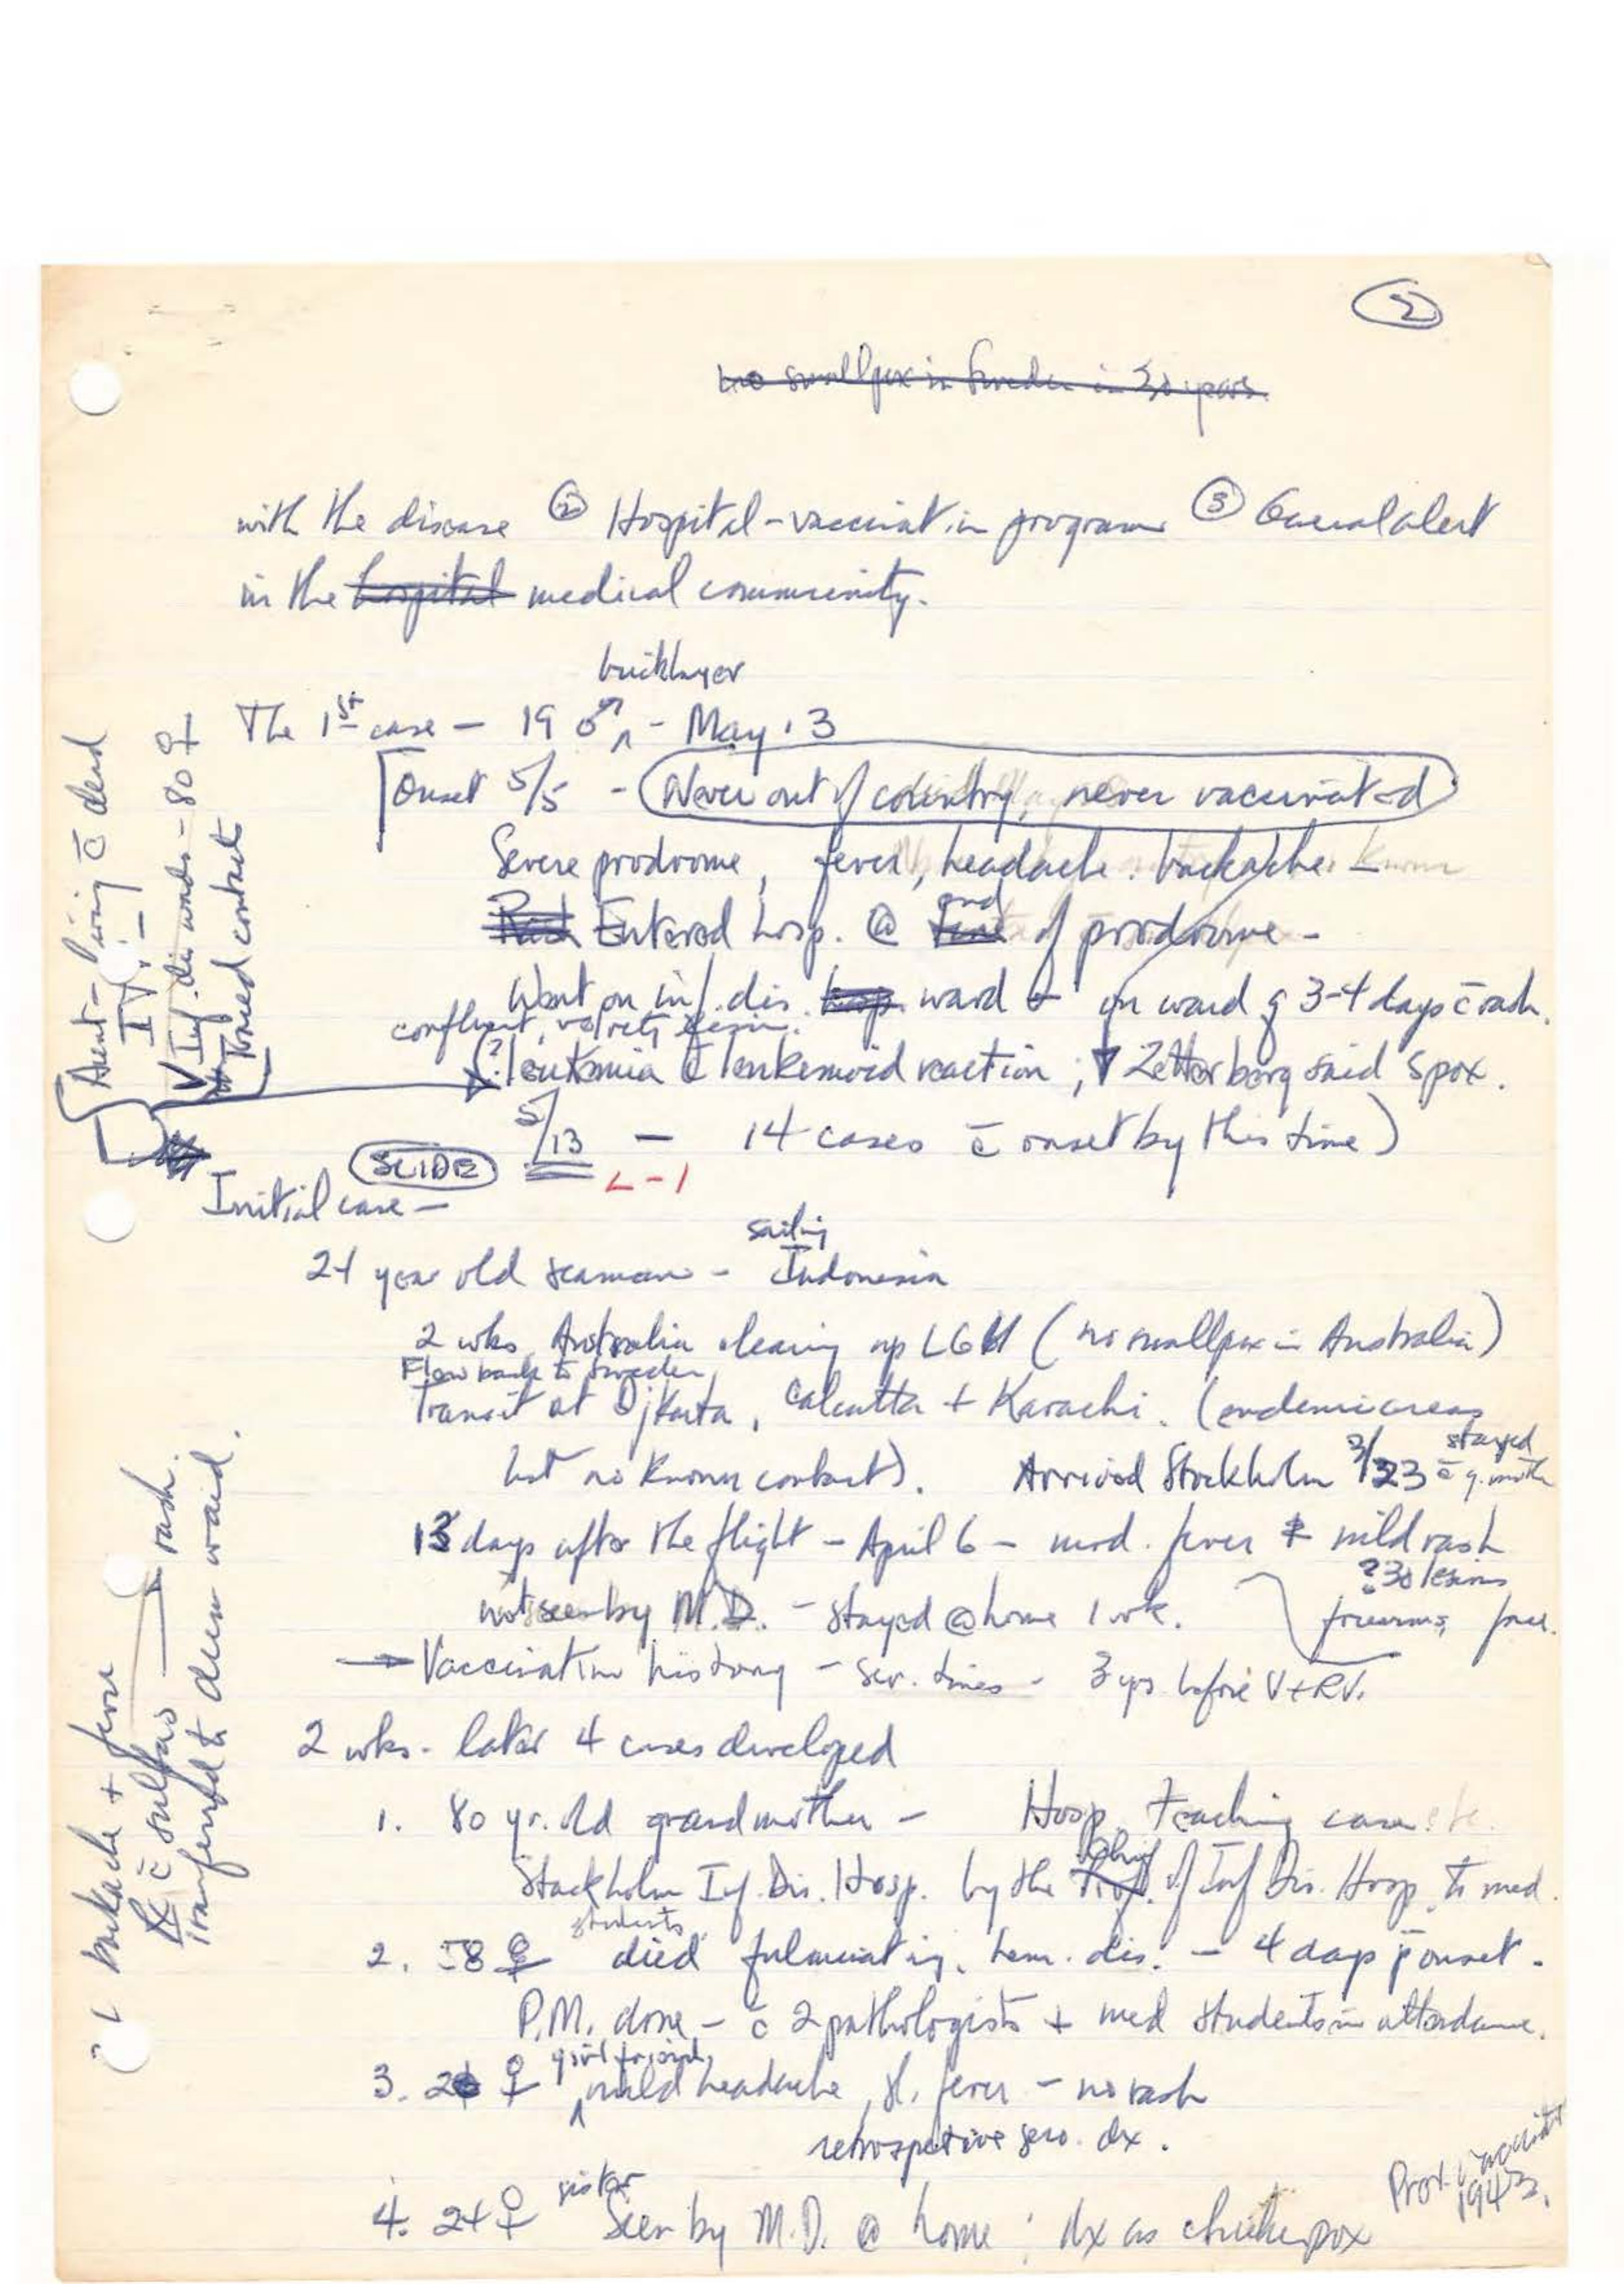 2
no smallpox in Sweden in 30 years.
with the disease ② Hospital-vaccination program ③ General alert
in the hospital medical community.
bricklayer
The 1st case - 19 ♂ ^ - May 13
Onset 5/5 - Never out of country, never vaccinated
Severe prodrome, fever, headache. backache. Known
Rash Entered hosp. @ time end of prodrome -
Went on inf. dis. hosp ward on ward 3-4 days c̄ rash.
confluent,
? leukemia c̄ leukemoid reaction; Zetterberg said Spox.
5/13 - 14 cases c̄ onset by this time)
SLIDE
L-1
Aunt - living c̄ dead
IV -
V Inf. dis. wards - 80 ♀
Traced contacts
Initial case -
sailing
24 year old seaman - Indonesia
2 wks Australia cleaning up (no smallpox in Australia)
Flew back to Sweden
Transit at Djkarta, Calcutta + Karachi. (endemic areas
but no known contact). Arrived Stockholm 3/23 stayed c̄ g. moth
13 days after the flight - April 6 - mod. fever + mild rash
? 30 lesions
not seen by M.D. - stayed @ home 1 wk. forearms, face.
→ Vaccination history - sev. times - 3 yrs before V+RV.
2 wks. later 4 cases developed
1. 80 yr. old grandmother - Hosp teaching case
Stockholm Inf. Dis. Hosp. by the Prof. Chief of Inf Dis. Hosp to med.
students
2. 58 ♀ died fulminating. hem. dis. - 4 days p̄ onset.
P.M. done - c̄ 2 pathologists + med students in attendance.
3. 26 ♀ girl friend, ^ mild headache, sl. fever - no rash
retrospective sero. dx.
4. 24 ♀ sister Seen by M.D. @ home; dx as chickenpox
1943.
backache + fever
Rx c̄ sulfas rash.
transferred to derm ward.